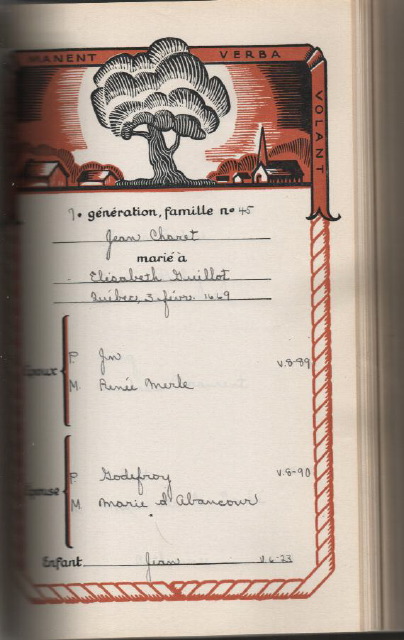 MANENT VERBA VOLANT
7. génération, famille nº 45
Jean Charet
marié à
Elisabeth Guillot
Québec, 3 févr. 1669
P. Jn V.8-89
M. Renée Merle
P Godefroy V.8-90
M Marie d'Abancour
Enfant Jean V.6-23